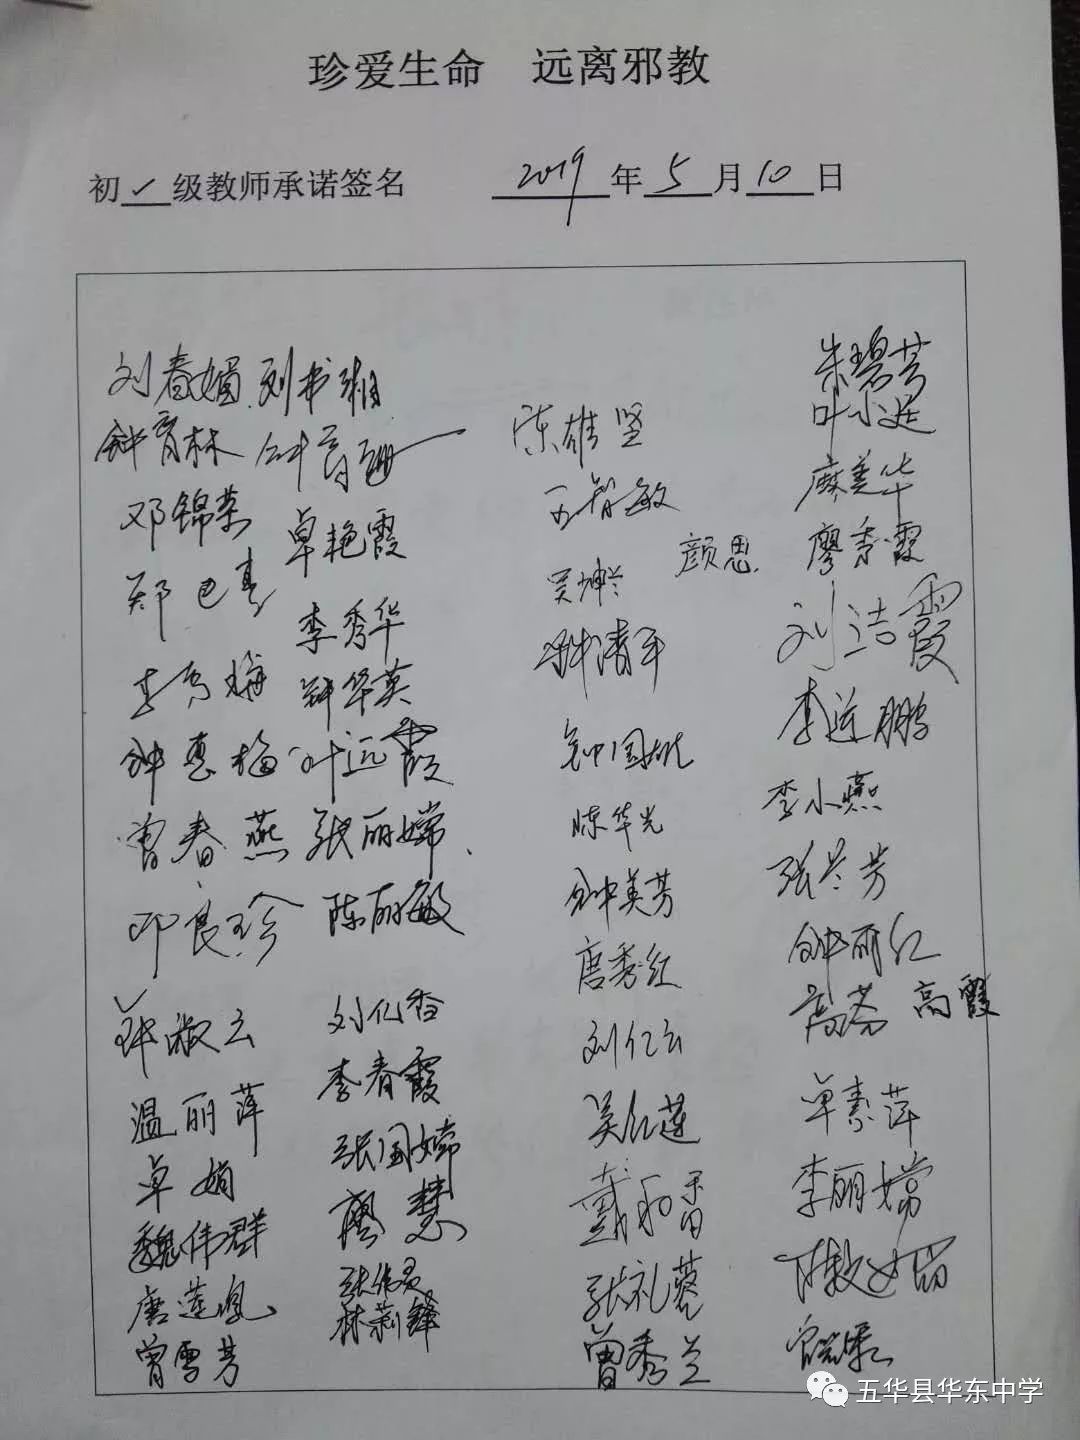 珍爱生命 远离邪教
初一级教师承诺签名 2019年5月10日
刘春媚 刘书湘
钟育林
邓锦荣 卓艳霞
李秀华
钟华英
钟惠梅 叶远霞
曾春燕 张丽嫦
邓良珍 陈丽敏
钟淑云 刘亿香
温丽萍 李春霞
卓娟 张国嫦
魏伟群 廖慧
唐莲凤 林莉锋
曾雪芳
陈雄坚
王智敏
吴坤兰 颜思
钟清平
陈华光
钟英芳
唐秀红
刘仁云
吴红莲
张礼蓉
曾秀兰
朱碧芳
叶小廷
麻美华
廖秀霞
刘洁霞
李远鹏
李小燕
张兰芳
钟丽红
高芬 高霞
单素萍
李丽嫦
五华县华东中学